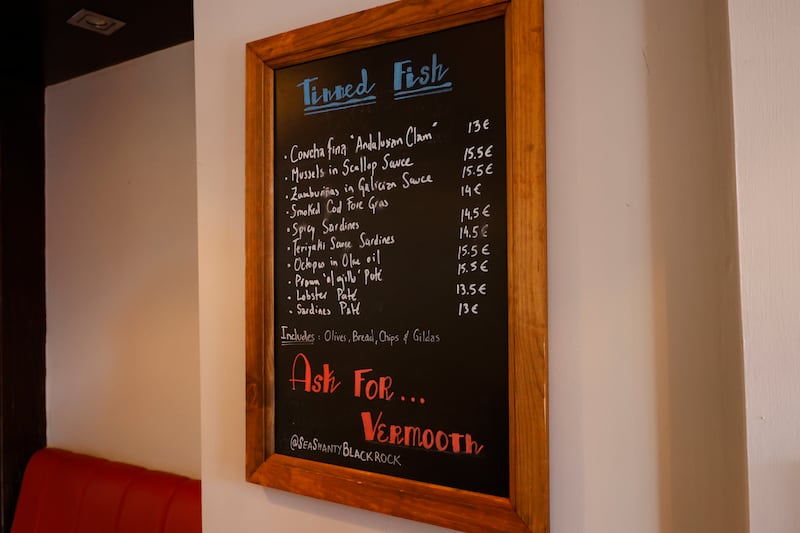 Tinned Fish
· Concha fina "Andalusian Clam" 13€
· Mussels in Scallop Sauce 15.5€
· Zamburiñas in Galiciza Sauce 15.5€
· Smoked Cod Foie Gras 14€
· Spicy Sardines 14.5€
· Teriyaki Sauce Sardines 14.5€
· Octopus in Olive oil 15.5€
· Prawn "al ajillo" Paté 15.5€
· Lobster Paté 13.5€
· Sardines Paté 13€
Includes: Olives, Bread, Chips & Gildas
Ask For...
Vermooth
@SeaShantyBlackrock